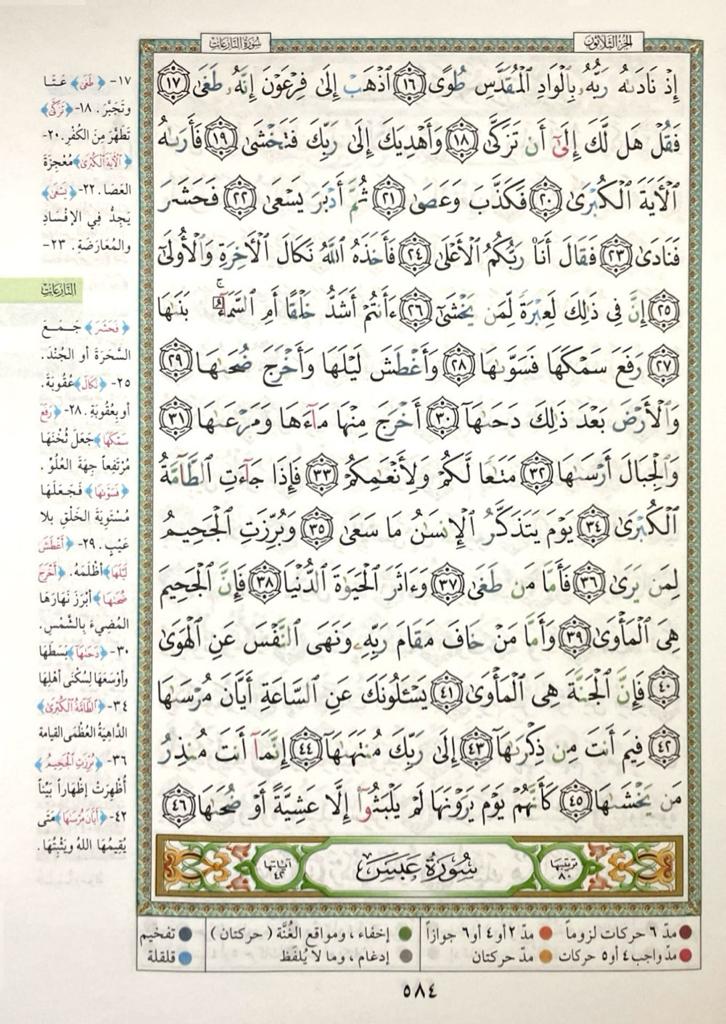 الجزء الثلاثون
سورة النازعات
إِذْ نَادَىٰهُ رَبُّهُۥ بِٱلْوَادِ ٱلْمُقَدَّسِ طُوًى ١٦ ٱذْهَبْ إِلَىٰ فِرْعَوْنَ إِنَّهُۥ طَغَىٰ ١٧
فَقُلْ هَل لَّكَ إِلَىٰٓ أَن تَزَكَّىٰ ١٨ وَأَهْدِيَكَ إِلَىٰ رَبِّكَ فَتَخْشَىٰ ١٩ فَأَرَىٰهُ
ٱلْـَٔايَةَ ٱلْكُبْرَىٰ ٢٠ فَكَذَّبَ وَعَصَىٰ ٢١ ثُمَّ أَدْبَرَ يَسْعَىٰ ٢٢ فَحَشَرَ
فَنَادَىٰ ٢٣ فَقَالَ أَنَا۠ رَبُّكُمُ ٱلْأَعْلَىٰ ٢٤ فَأَخَذَهُ ٱللَّهُ نَكَالَ ٱلْـَٔاخِرَةِ وَٱلْأُولَىٰٓ
٢٥ إِنَّ فِى ذَٰلِكَ لَعِبْرَةً لِّمَن يَخْشَىٰٓ ٢٦ ءَأَنتُمْ أَشَدُّ خَلْقًا أَمِ ٱلسَّمَآءُ ۚ بَنَىٰهَا
٢٧ رَفَعَ سَمْكَهَا فَسَوَّىٰهَا ٢٨ وَأَغْطَشَ لَيْلَهَا وَأَخْرَجَ ضُحَىٰهَا ٢٩
وَٱلْأَرْضَ بَعْدَ ذَٰلِكَ دَحَىٰهَآ ٣٠ أَخْرَجَ مِنْهَا مَآءَهَا وَمَرْعَىٰهَا ٣١
وَٱلْجِبَالَ أَرْسَىٰهَا ٣٢ مَتَٰعًا لَّكُمْ وَلِأَنْعَٰمِكُمْ ٣٣ فَإِذَا جَآءَتِ ٱلطَّآمَّةُ
ٱلْكُبْرَىٰ ٣٤ يَوْمَ يَتَذَكَّرُ ٱلْإِنسَٰنُ مَا سَعَىٰ ٣٥ وَبُرِّزَتِ ٱلْجَحِيمُ
لِمَن يَرَىٰ ٣٦ فَأَمَّا مَن طَغَىٰ ٣٧ وَءَاثَرَ ٱلْحَيَوٰةَ ٱلدُّنْيَا ٣٨ فَإِنَّ ٱلْجَحِيمَ
هِىَ ٱلْمَأْوَىٰ ٣٩ وَأَمَّا مَنْ خَافَ مَقَامَ رَبِّهِۦ وَنَهَى ٱلنَّفْسَ عَنِ ٱلْهَوَىٰ
٤٠ فَإِنَّ ٱلْجَنَّةَ هِىَ ٱلْمَأْوَىٰ ٤١ يَسْـَٔلُونَكَ عَنِ ٱلسَّاعَةِ أَيَّانَ مُرْسَىٰهَا
٤٢ فِيمَ أَنتَ مِن ذِكْرَىٰهَآ ٤٣ إِلَىٰ رَبِّكَ مُنتَهَىٰهَآ ٤٤ إِنَّمَآ أَنتَ مُنذِرُ
مَن يَخْشَىٰهَا ٤٥ كَأَنَّهُمْ يَوْمَ يَرَوْنَهَا لَمْ يَلْبَثُوٓا۟ إِلَّا عَشِيَّةً أَوْ ضُحَىٰهَا ٤٦
ترتيبها ٨٠
سورة عبس
آياتها ٤٢
١٧- ﴿طَغَىٰ﴾ عَتَا
وتَجَبَّرَ. ١٨- ﴿تَزَكَّىٰ﴾
تَطَهَّرَ مِنَ الكُفْرِ. ٢٠-
﴿الآيَةَ الْكُبْرَىٰ﴾ مُعْجِزَةَ
العَصَا. ٢٢- ﴿يَسْعَىٰ﴾
يَجِدُّ فِي الإِفْسَادِ
والمُعَارَضَةِ. ٢٣-
النازعات
﴿فَحَشَرَ﴾ جَمَعَ
السَّحَرَةَ أو الجُنْدَ.
٢٥- ﴿نَكَالَ﴾ عُقُوبَةَ.
أو بِعُقُوبَةِ. ٢٨- ﴿رَفَعَ
سَمْكَهَا﴾ جَعَلَ ثُخْنَهَا
مُرْتَفِعاً جِهَةَ العُلُوِّ.
﴿فَسَوَّىٰهَا﴾ فَجَعَلَهَا
مُسْتَوِيَةَ الخَلْقِ بلا
عَيْبٍ. ٢٩- ﴿أَغْطَشَ
لَيْلَهَا﴾ أَظْلَمَهُ. ﴿أَخْرَجَ
ضُحَىٰهَا﴾ أَبْرَزَ نَهَارَهَا
المُضِيءَ بِالشَّمْسِ.
٣٠- ﴿دَحَىٰهَا﴾ بَسَطَهَا
وأَوْسَعَهَا لِسُكْنَى أَهْلِهَا
٣٤- ﴿الطَّامَّةُ الْكُبْرَىٰ﴾
الدَّاهِيَةُ العُظْمَى القيامة
٣٦- ﴿بُرِّزَتِ الْجَحِيمُ﴾
أُظْهِرَتْ إظْهَاراً بَيِّناً
٤٢- ﴿أَيَّانَ مُرْسَىٰهَا﴾ مَتَى
يُقِيمُهَا اللهُ ويُثْبِتُهَا.
مدّ ٦ حركات لزوماً مدّ ٢ أو ٤ أو ٦ جوازاً إخفاء، ومواقع الغُنَّة (حركتان) تفخيم
مدّ واجب ٤ أو ٥ حركات مدّ حركتان إدغام، وما لا يُلفَظ قلقلة
٥٨٤